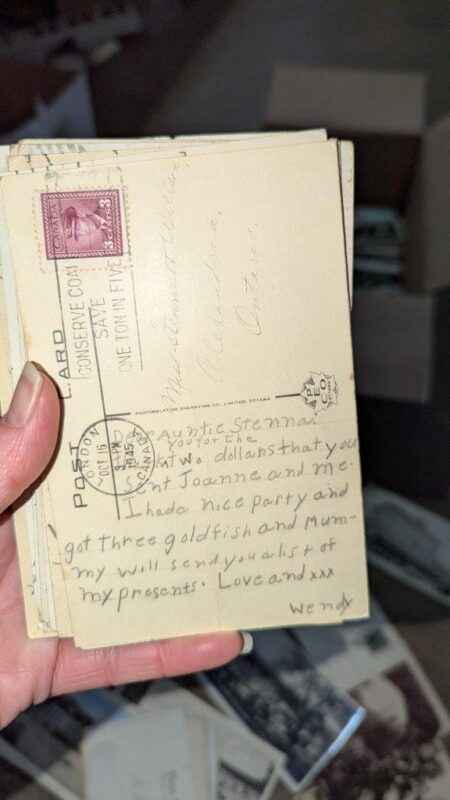 POST CARD
CANADA
3 CENTS 3
CONSERVE COAL
SAVE
ONE TON IN FIVE
LONDON
OCT 16
PM
1945
CANADA
Alexandria,
Ontario.
PHOTOGELATINE ENGRAVING CO. LIMITED, OTTAWA
PECO
Auntie Stenna.
you for the
two dollars that you
sent Joanne and me.
I had a nice party and
got three goldfish and Mum-
my will send you a list of
my presents. Love and xxx
Wendy